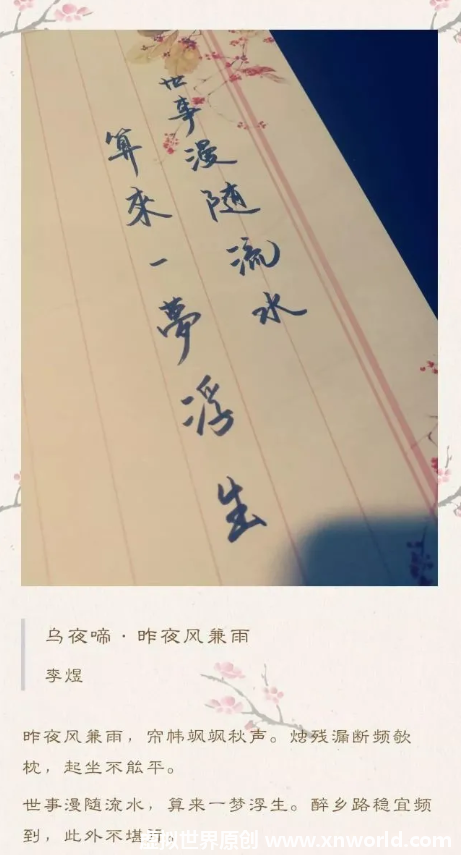 世事漫随流水
算來一夢浮生
乌夜啼 · 昨夜风兼雨
李煜
昨夜风兼雨，帘帏飒飒秋声。烛残漏断频欹
枕，起坐不能平。
世事漫随流水，算来一梦浮生。醉乡路稳宜频
到，此外不堪
虚拟世界原创 www.xnworld.com